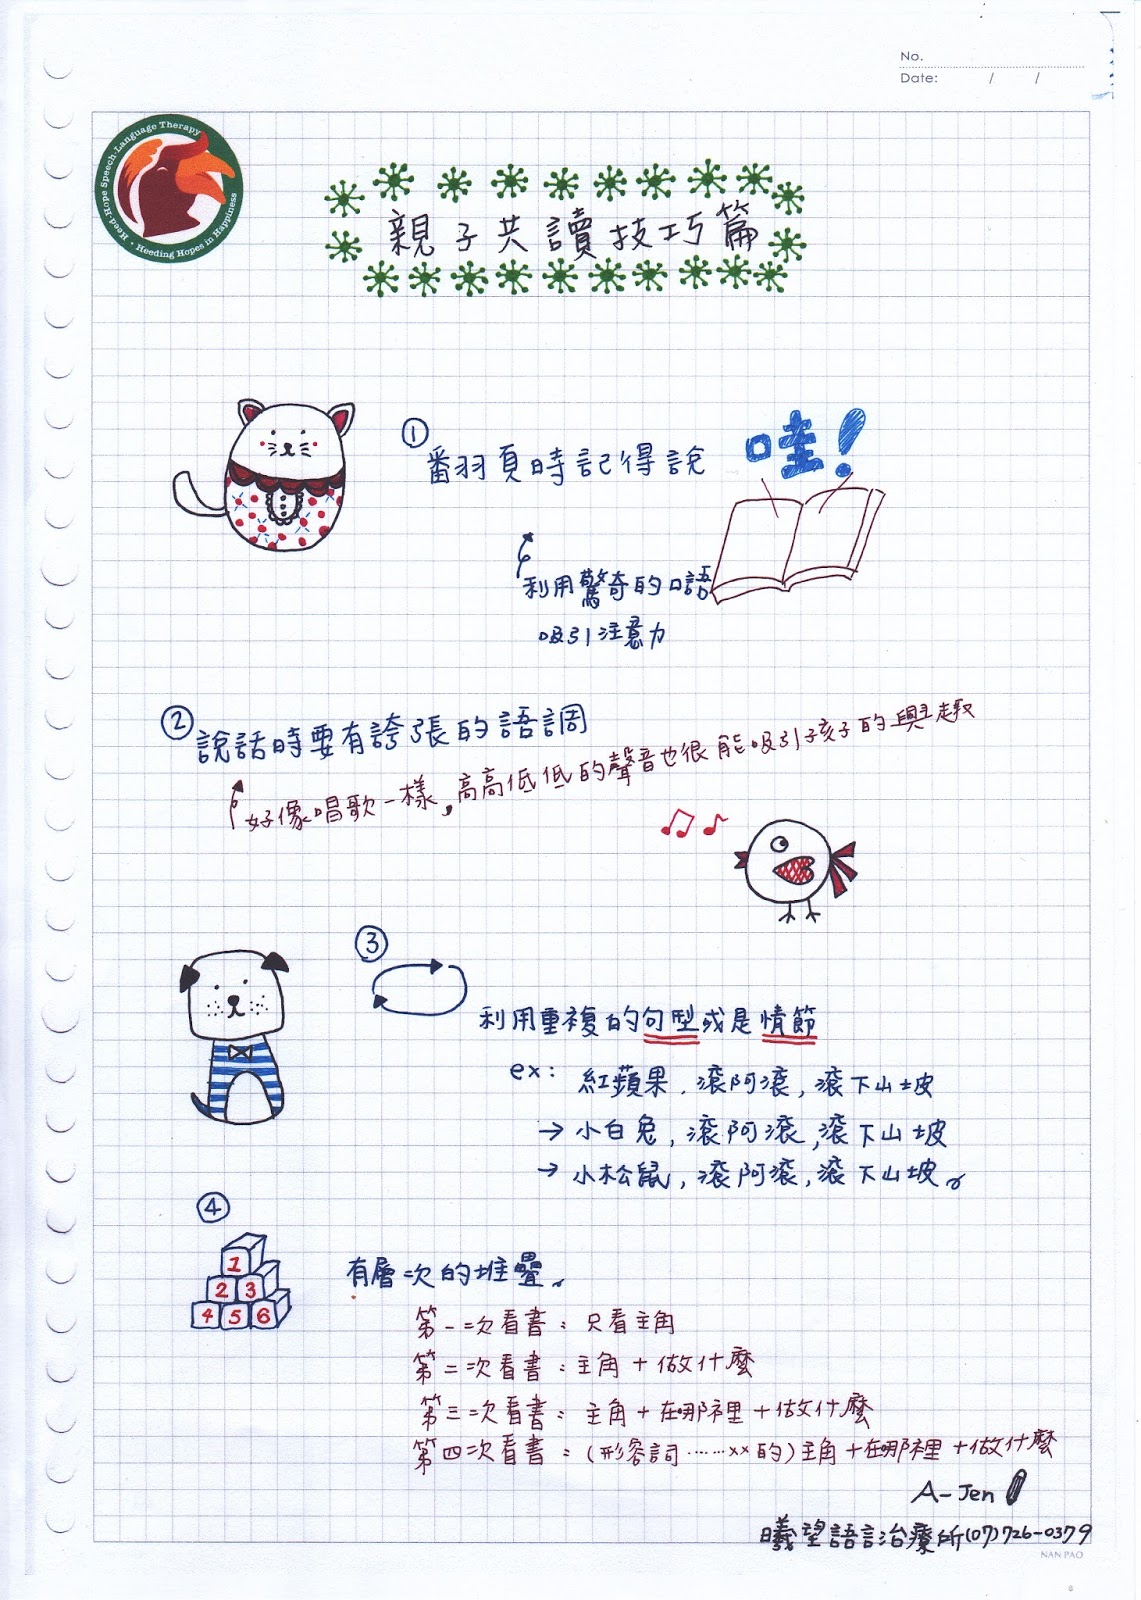 No.
Date: / /
Heed-Hope Speech-Language Therapy
Heeding Hopes in Happiness
親子共讀技巧篇
① 翻頁時記得說 哇!
利用驚奇的口語
吸引注意力
② 說話時要有誇張的語調
好像唱歌一樣,高高低低的聲音也很能吸引孩子的興趣
③
利用重複的句型或是情節
ex: 紅蘋果,滾阿滾,滾下山坡
→ 小白兔,滾阿滾,滾下山坡
→ 小松鼠,滾阿滾,滾下山坡。
④
1
2 3
4 5 6
有層次的堆疊。
第一次看書:只看主角
第二次看書:主角+做什麼
第三次看書:主角+在哪裡+做什麼
第四次看書:(形容詞……××的)主角+在哪裡+做什麼
A-Jen
曦望語言治療所(07)726-0379
NAN PAO